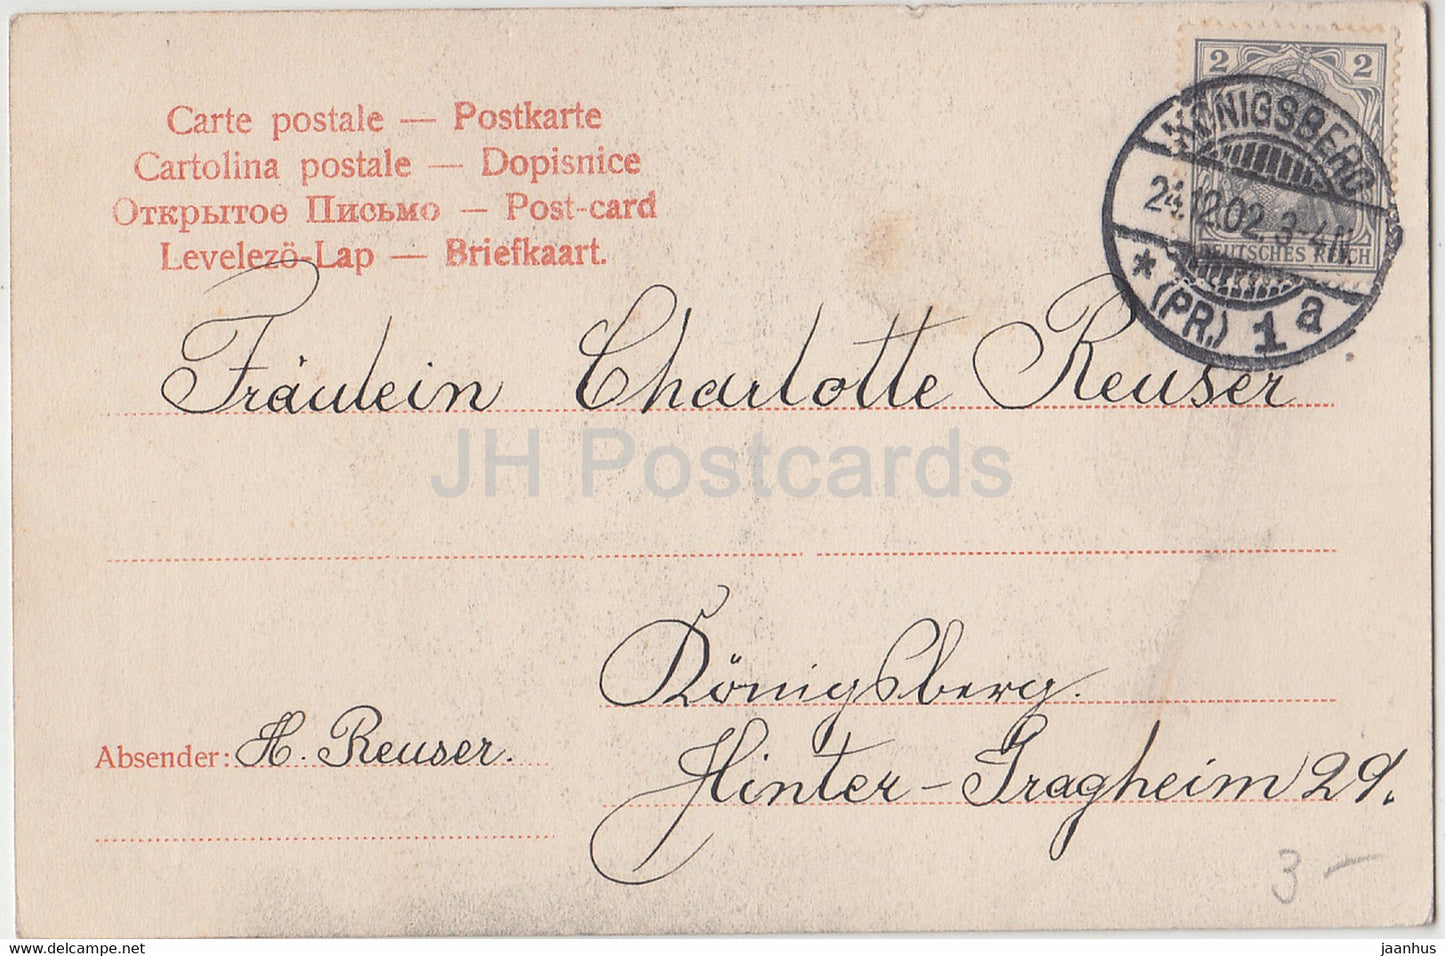 Carte postale — Postkarte
Cartolina postale — Dopisnice
Открытое Письмо — Post-card
Levelezö-Lap — Briefkaart.
2 2
DEUTSCHES REICH
KÖNIGSBERG
24.12.02. 3-4N.
* (PR.) 1 a
Fräulein Charlotte Reuser
JH Postcards
Königsberg.
Absender: H. Reuser.
Hinter-Tragheim 29.
3 —
jaanhus